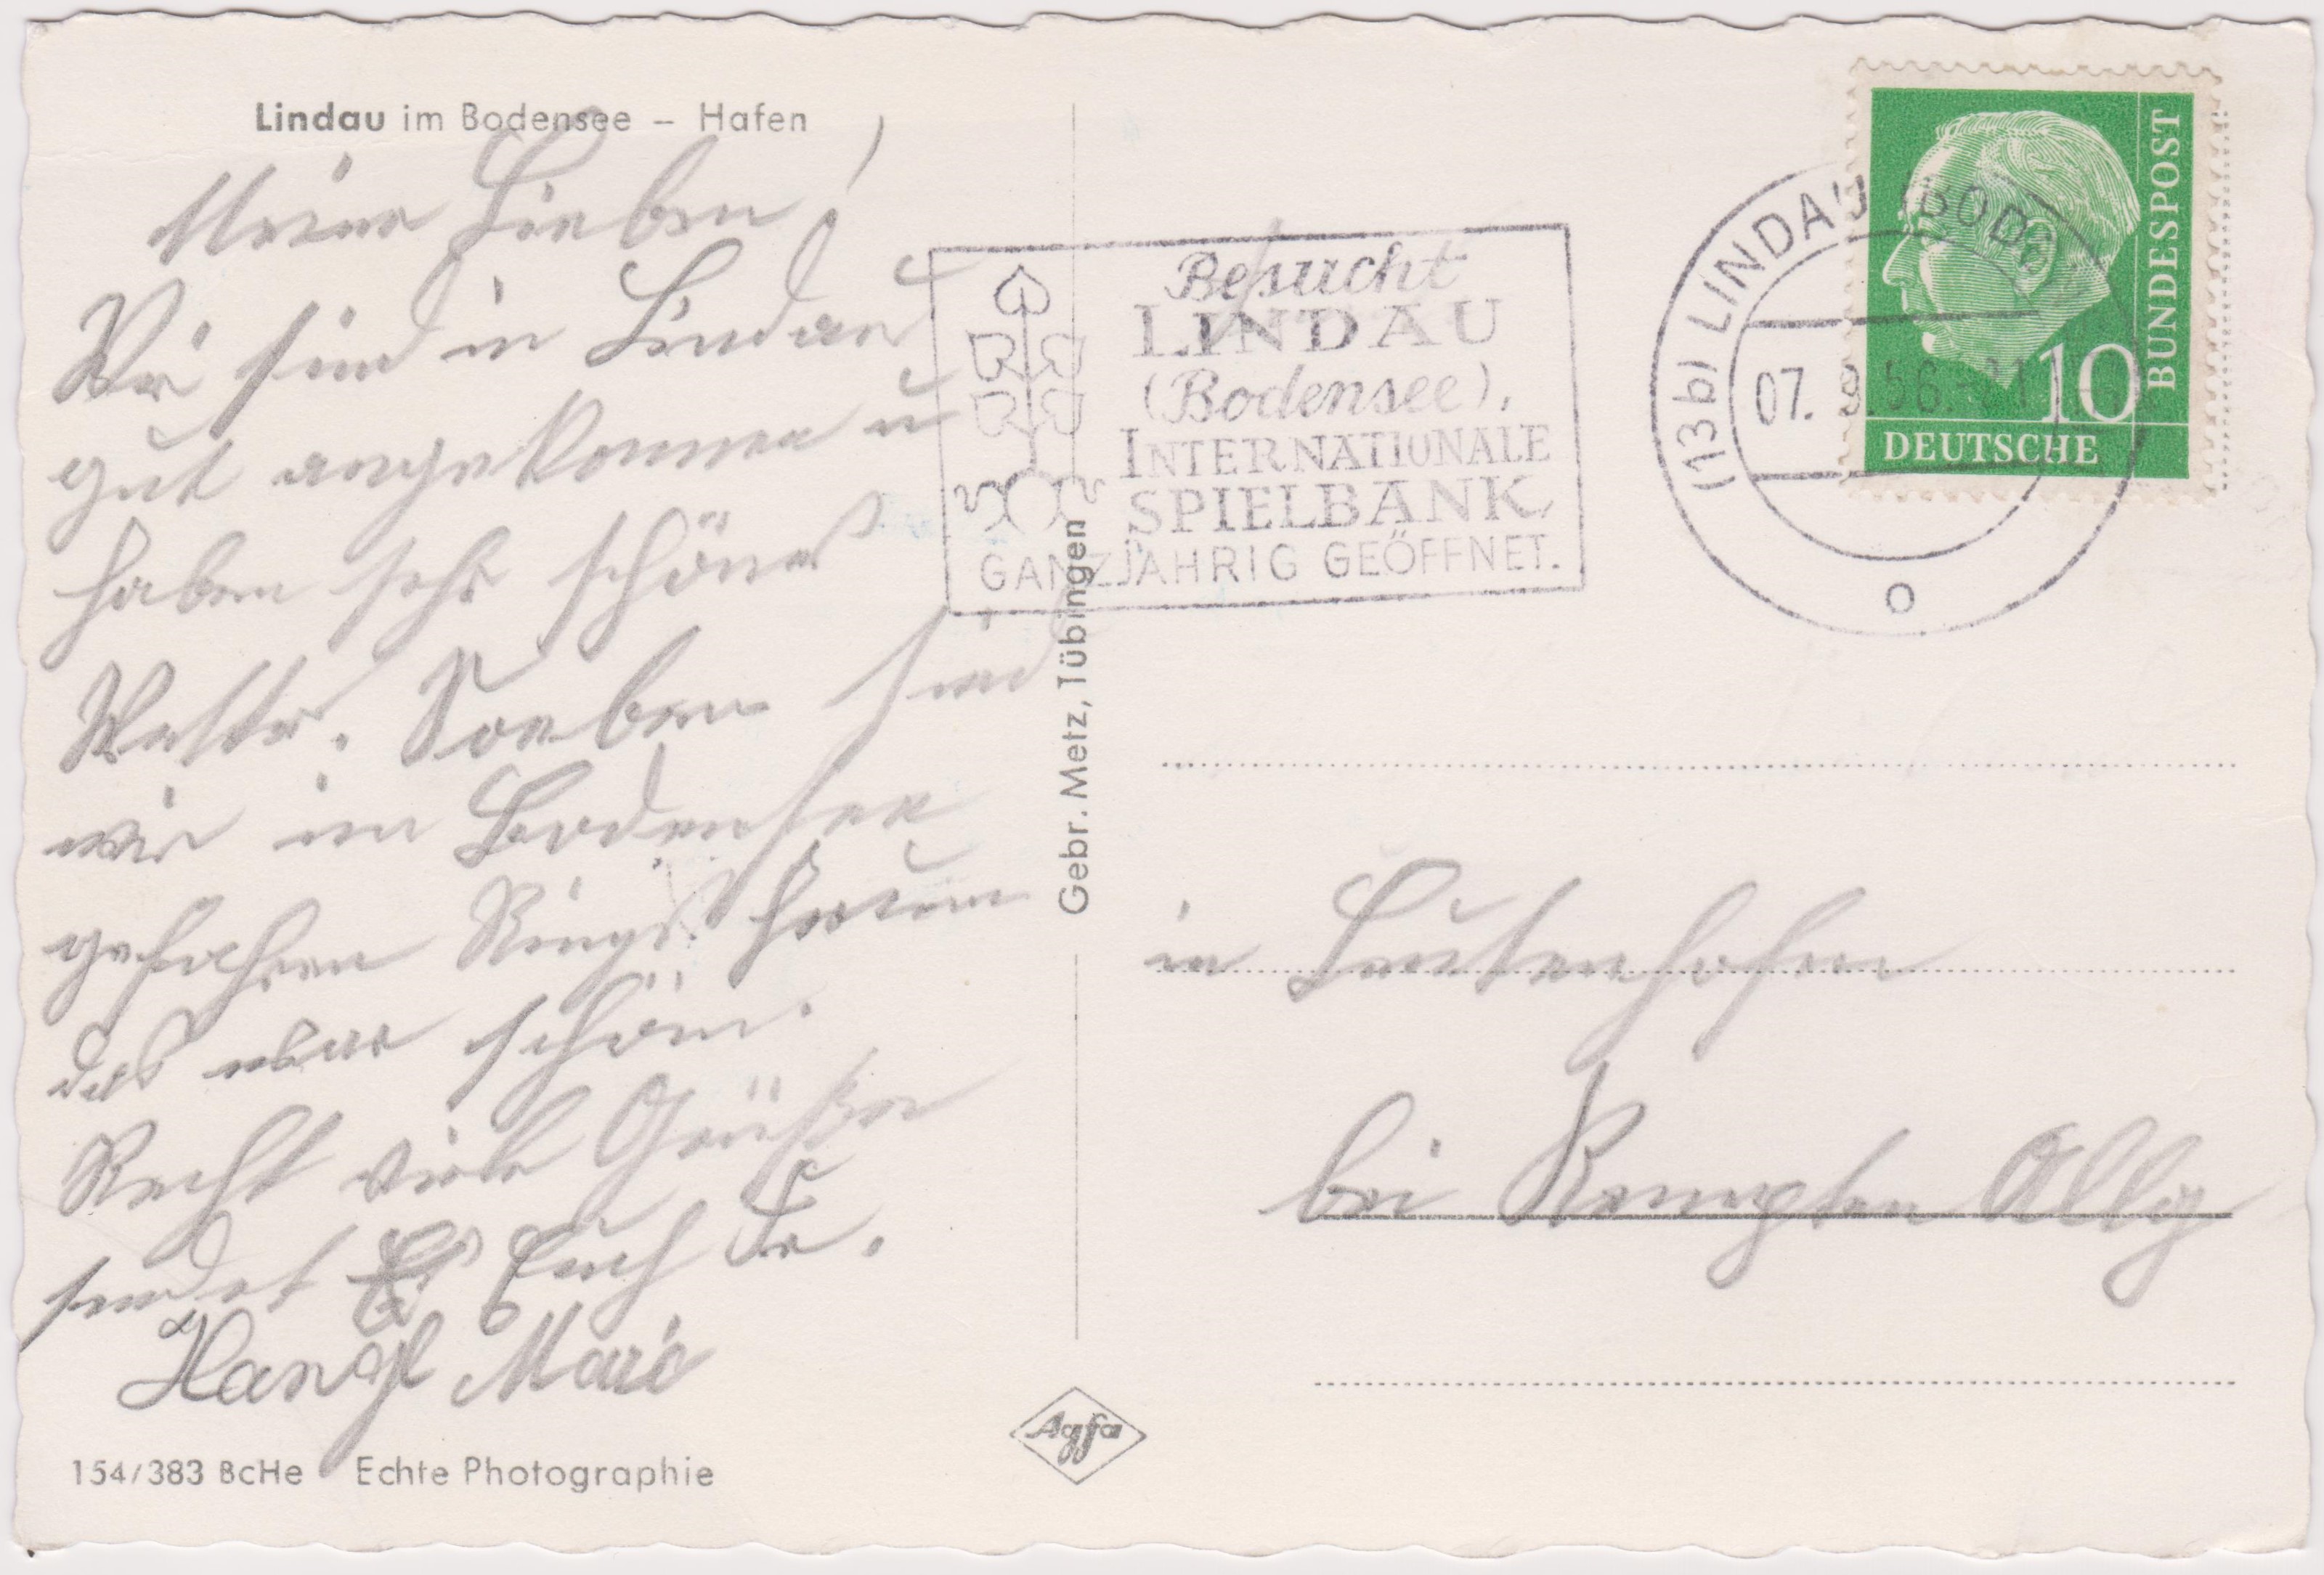 Lindau im Bodensee – Hafen
Meine Lieben!
Wir sind in Lindau
gut angekommen u
haben sehr schönes
Wetter. Soeben sind
wir im Bodensee
gefahren Rings herum
das war schön.
Recht viele Grüße
sendet Euch Fr.
Marie
154/383 BcHe Echte Photographie
Gebr. Metz, Tübingen
Agfa
Besucht
LINDAU
(Bodensee),
INTERNATIONALE
SPIELBANK,
GANZJÄHRIG GEÖFFNET.
(13b) LINDAU (BODENSEE)
07. 56.-21
o
10
DEUTSCHE
BUNDESPOST
in Leutenhofen
bei Kempten Allg